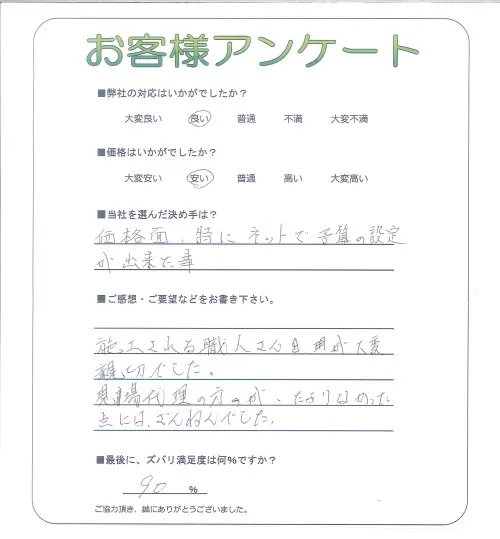 お客様アンケート
■弊社の対応はいかがでしたか？
大変良い 良い 普通 不満 大変不満
■価格はいかがでしたか？
大変安い 安い 普通 高い 大変高い
■当社を選んだ決め手は？
価格面、特にネットで予算の設定
が出来た事
■ご感想・ご要望などをお書き下さい。
施工される職人さん 大変
親切でした。
現場代理の方が、たよりなかった
点には、ざんねんでした。
■最後に、ズバリ満足度は何％ですか？
90 ％
ご協力頂き、誠にありがとうございました。